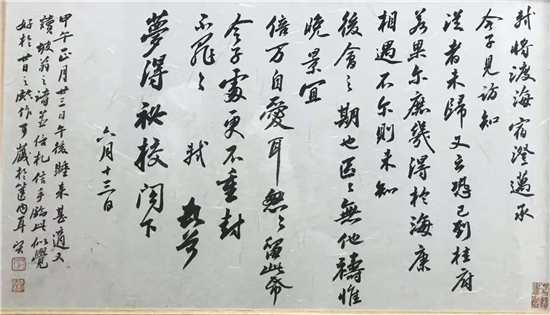 軾將渡海宿澄邁承
令子見訪知
從者未歸又云恐已到桂府
若果尔庶幾得於海康
相遇不尔則未知
後會之期也區〻無他禱惟
晚景宜
倍万自愛耳怱〻留此帋
令子處更不重封
不罪〻軾頓首
夢得祕校閣下
六月十三日
甲午正月廿三日午後睡來甚適又
讀坡翁之諸信札信手臨此似覺
好於昔日之作可藏於篋內耳